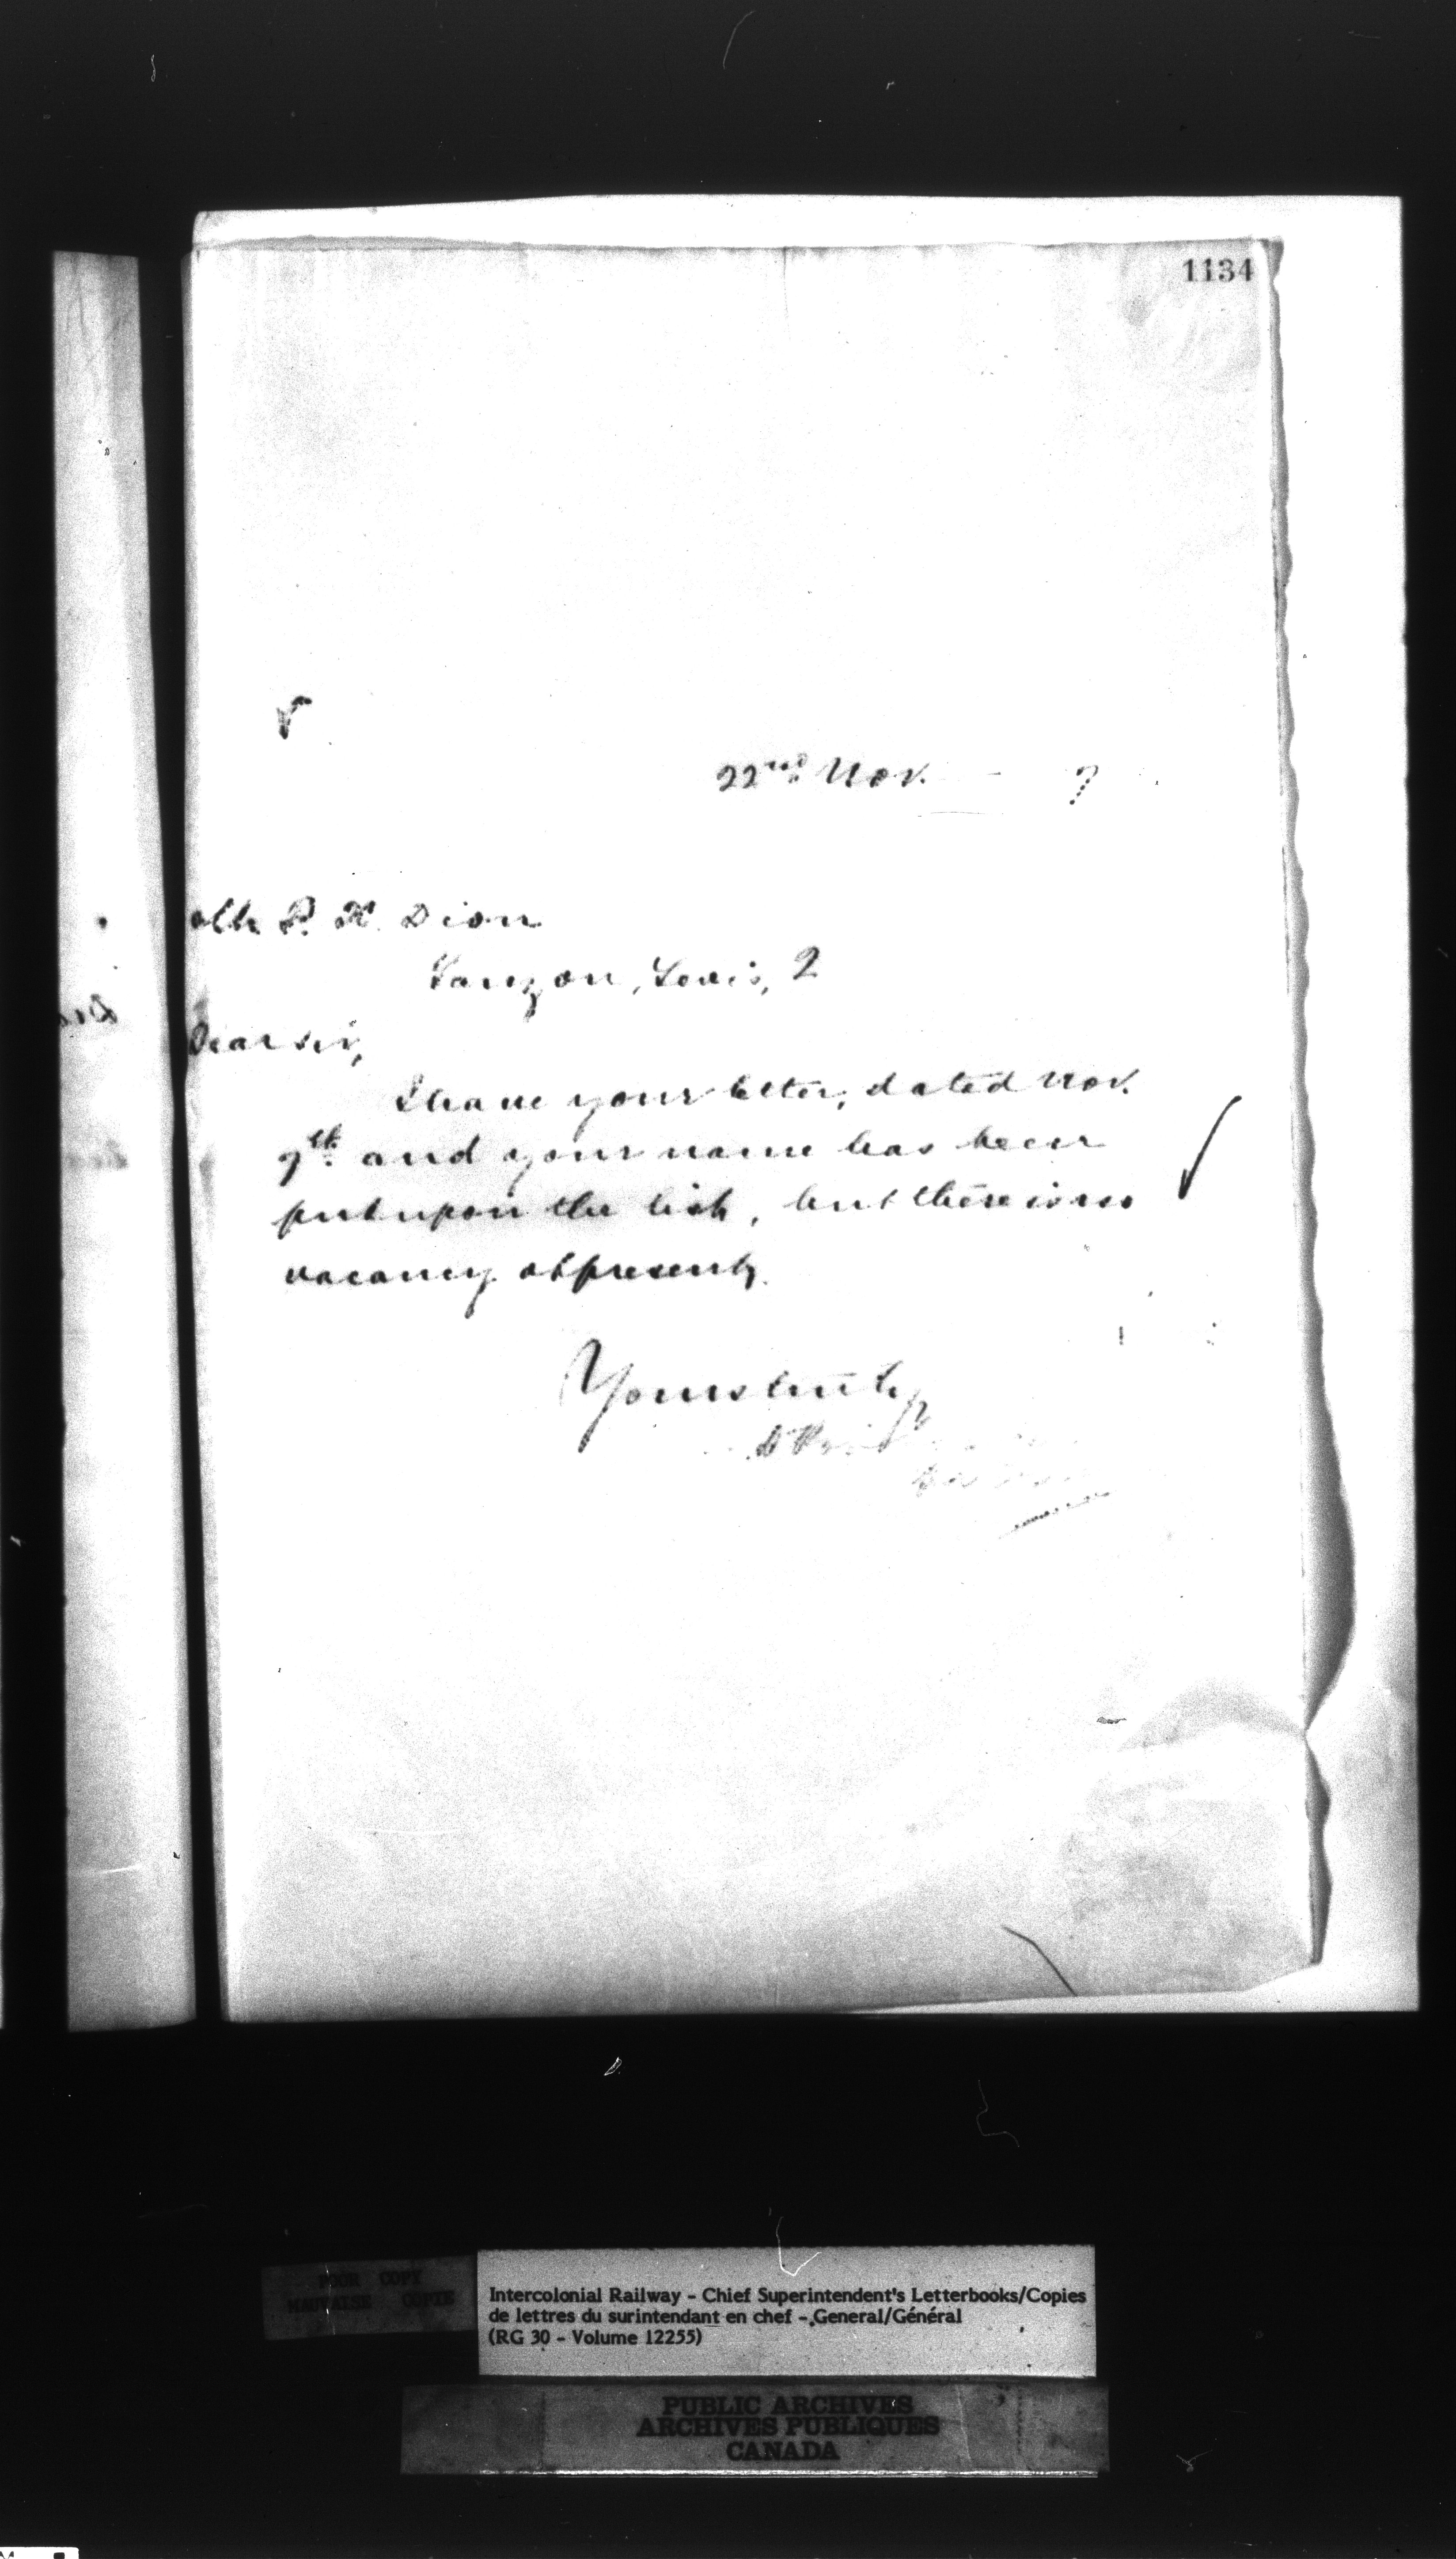 1134
22nd Nov. 7
Mr P. H. Dion
Lauzon, Levis, 2
Dear Sir,
I have your letter, dated Nov.
9th. and your name has been
put upon the list, but there is no
vacancy at present.
Yours truly
POOR COPY
MAUVAISE COPIE
Intercolonial Railway - Chief Superintendent's Letterbooks/Copies
de lettres du surintendant en chef - General/Général
(RG 30 - Volume 12255)
PUBLIC ARCHIVES
ARCHIVES PUBLIQUES
CANADA